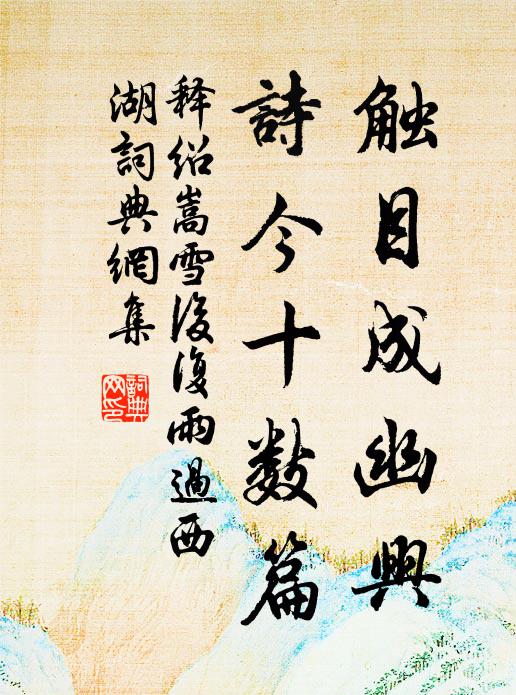 触目成幽興
詩今十数篇
释绍嵩雪後復雨過西
湖詞典網集
詞典
网印